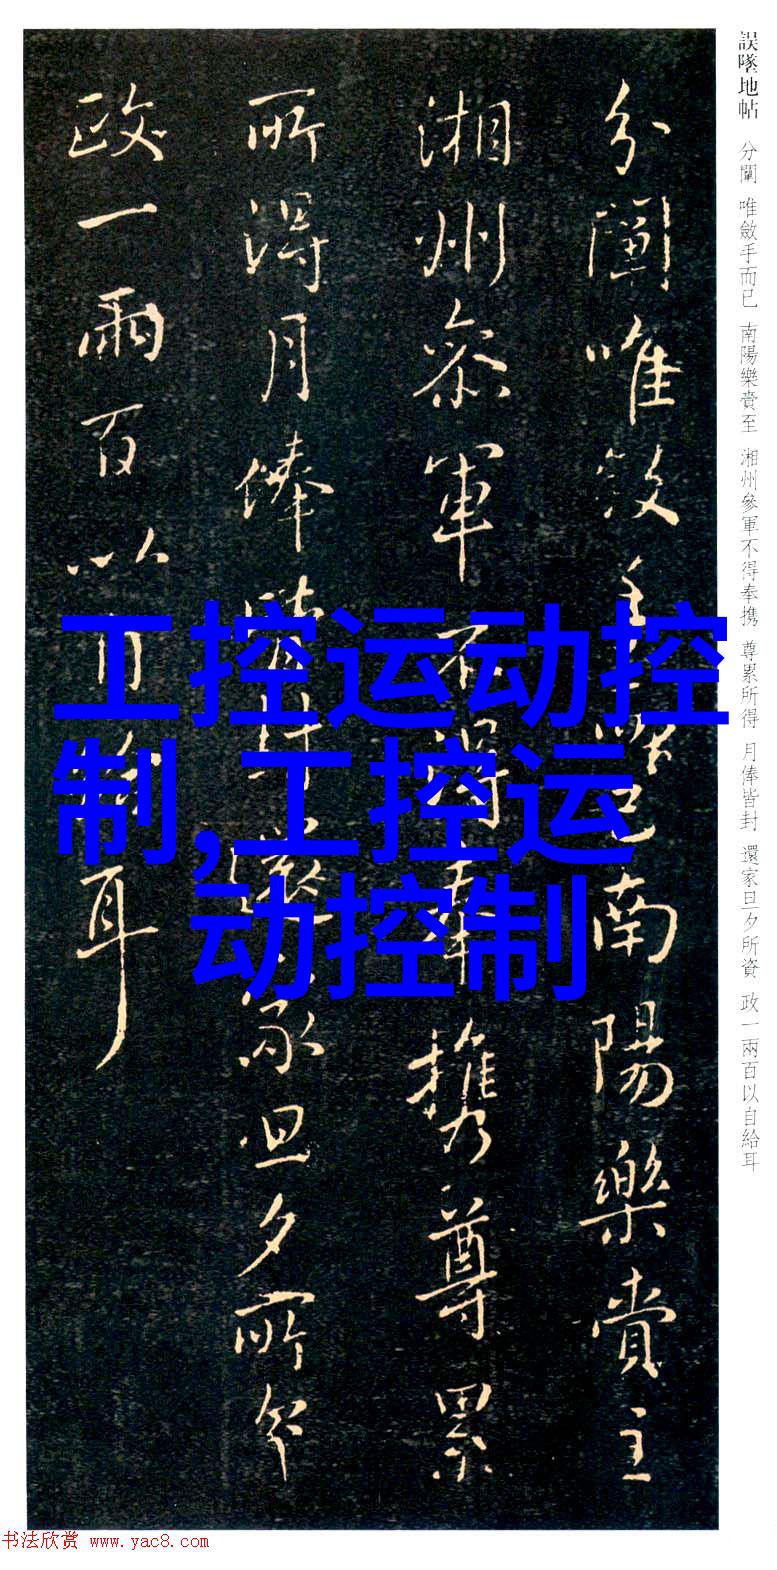 誤墜地帖 分闡 唯斂手而已 南陽樂賁至 湘州參軍不得奉携 尊累所得 月俸皆封 還家旦夕所資 政一兩百以自給耳
分闡唯斂手而已南陽樂賁至
湘州參軍不得奉携尊累
所得月俸皆封還家旦夕所資
政一兩百以自給耳
工控运动控
制,工控运
动控制
书法欣赏 www.yac8.com